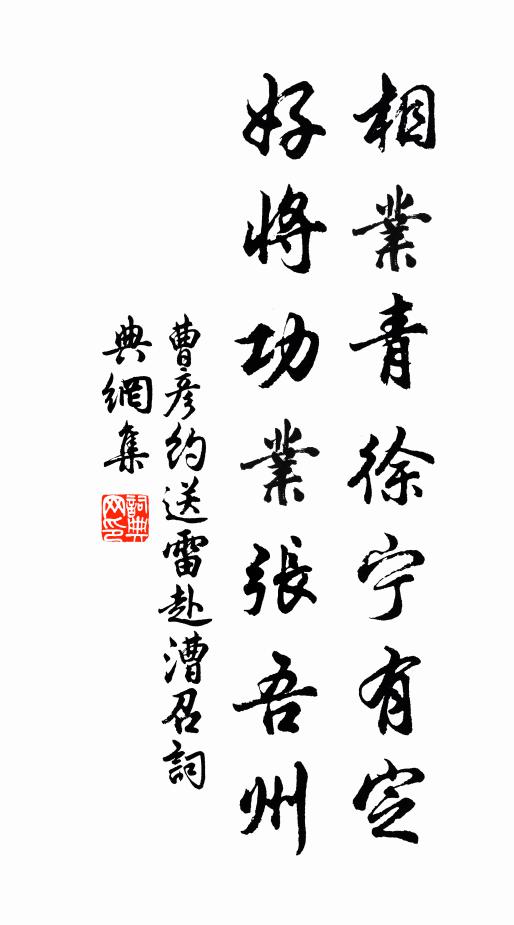 相業青徐宁有定
好將功業張吾州
曹彦約送雷赴漕召詞
典網集
詞典網印